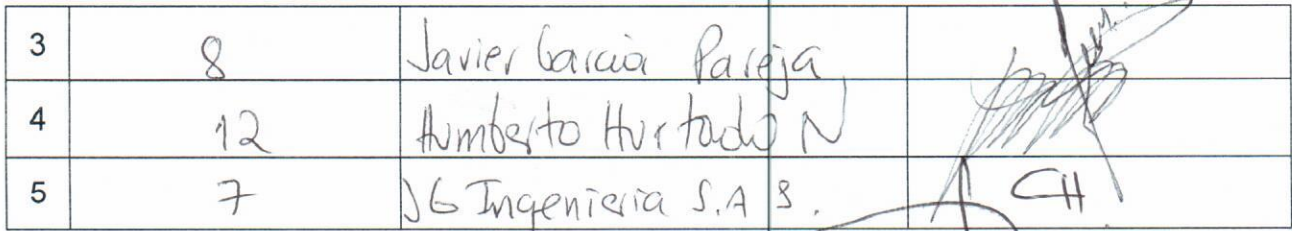 3 8 Javier Garcia Pareja
4 12 Humberto Hurtado N
5 7 JG Ingenieria S.A S. CH